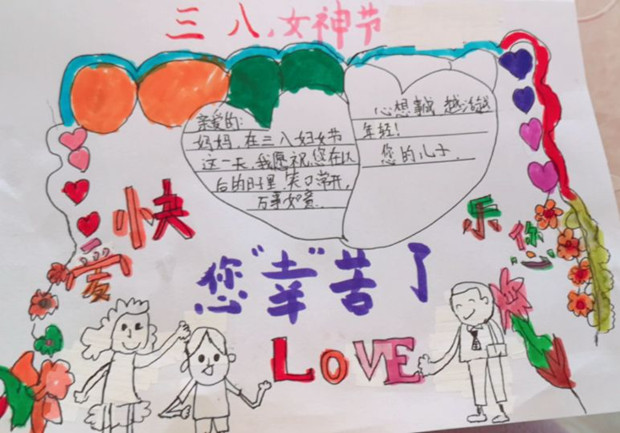 三八,女神节
亲爱的:
妈妈,在三八妇女节
这一天,我愿祝您在以
后的日子里,笑口常开,
万事如意.
心想事成,越活越
年轻!
您的儿子.
快乐
爱您
您"幸"苦了
LOVE